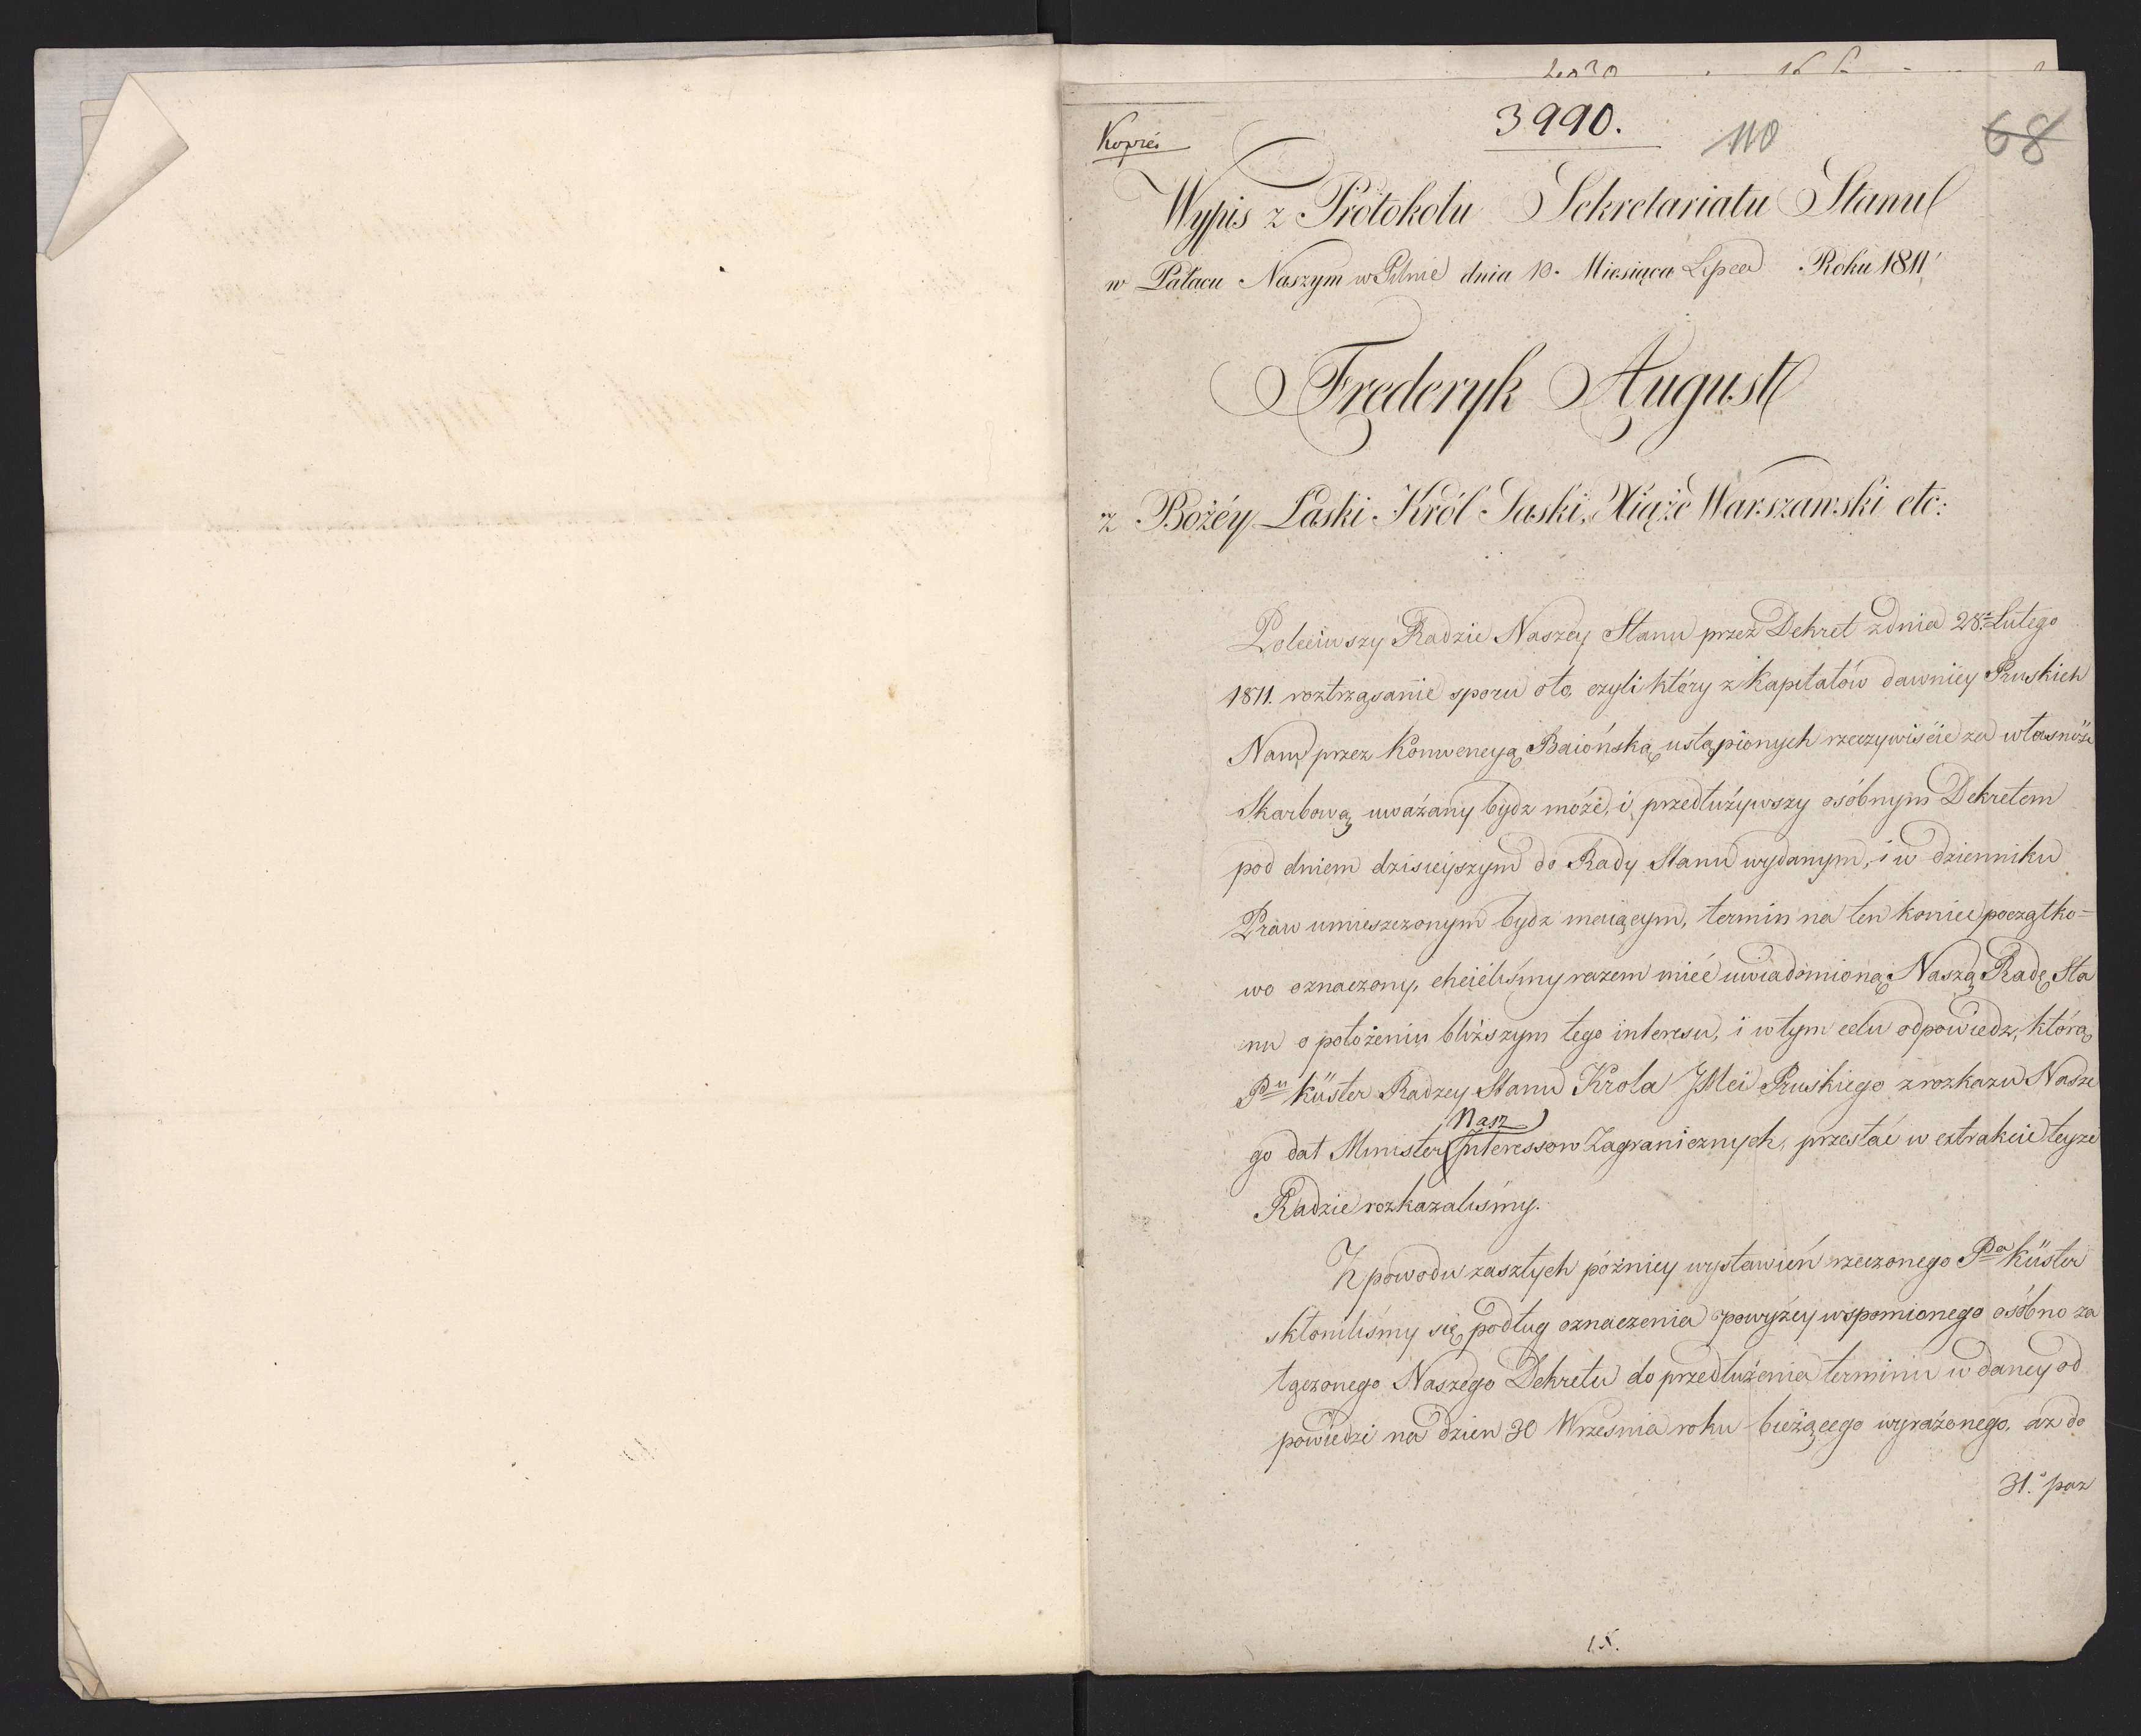 3990.
110
68
Kopia
Wypis z Protokołu Sekretariatu Stanu
w Pałacu Naszym w Pilnie dnia 10. Miesiąca Lipca Roku 1811
Frederyk August
z Bożéy Łaski Król Saski, Xiąże Warszawski etc:
Poleciwszy Radzie Naszey Stanu przez Dekret z dnia 28. Lutego
1811. roztrząsanie sporu oto, czyli który z Kapitałów dawniey Pruskich
Nam przez Konwencyą Baiońską ustąpionych rzeczywiście za własność
Skarbową uważany bydz może, i przedłużywszy osóbnym Dekretem
pod dniem dzisieyszym do Rady Stanu wydanym, i w dzienniku
Praw umieszczonym bydz maiącym, termin na ten koniec początko=
wo oznaczony, chcieliśmy razem mieć uwiadomioną Naszą Radę Sta
nu o położeniu bliższym tego interesu, i w tym celu odpowiedz, którą
Pu Küster Radzcy Stanu Krola JMci Pruskiego z rozkazu Nasze
Nasz
go dał Minister Interessow Zagranicznych, przesłać w extrakcie teyże
Radzie rozkazaliśmy.
Z powodu zaszłych pózniey wystawień rzeczonego Pa Küster
skłoniliśmy się podług oznaczenia powyżey wspomionego osóbno za
łączonego Naszego Dekretu do przedłużenia terminu w daney od
powiedzi na dzien 30 Wrzesnia roku bieżącego wyrażonego, aż do
31. paz